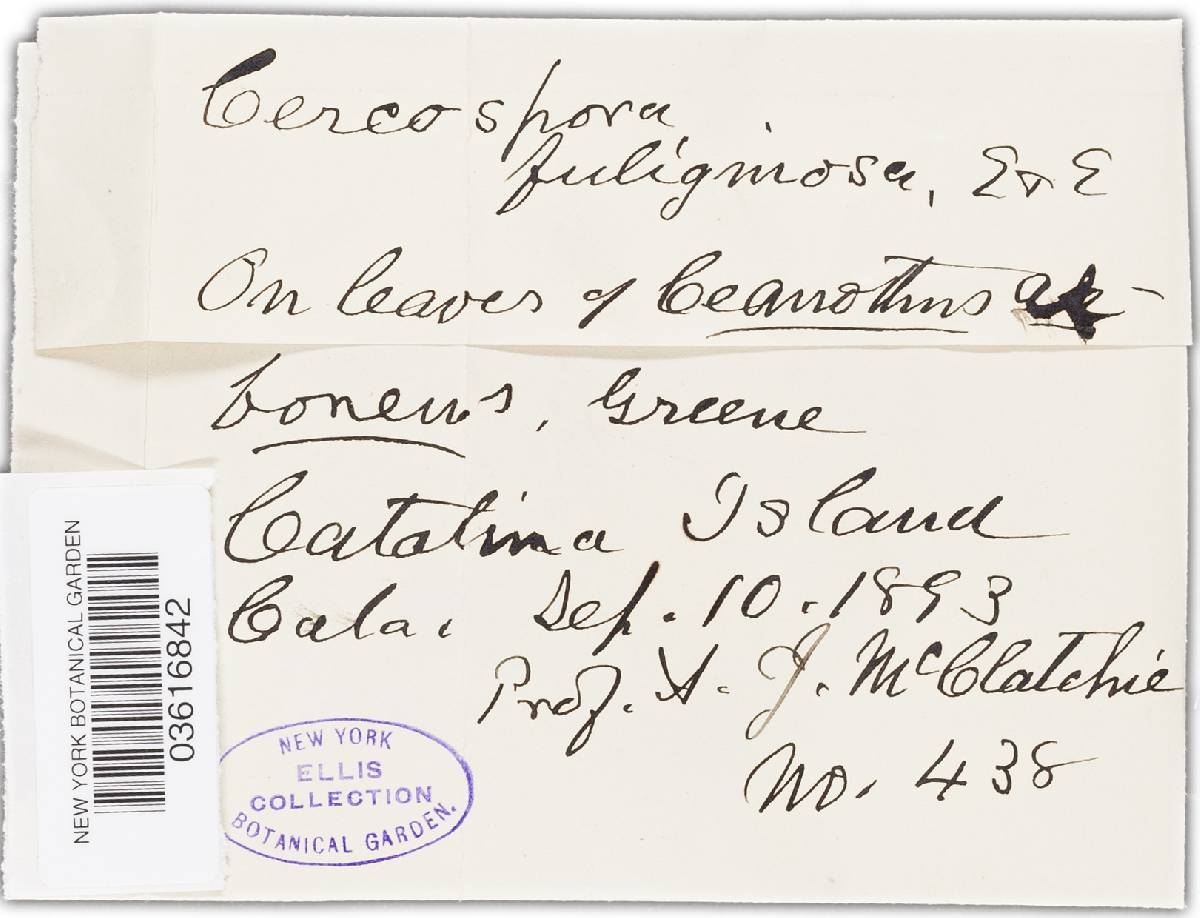 Cercospora
fuliginosa, E & E
On leaves of Ceanothus ar-
boreus, Greene
Catalina Island
Cala. Sep. 10. 1893
Prof. A. J. McClatchie
No. 438
NEW YORK BOTANICAL GARDEN
03616842
NEW YORK
ELLIS
COLLECTION
BOTANICAL GARDEN.